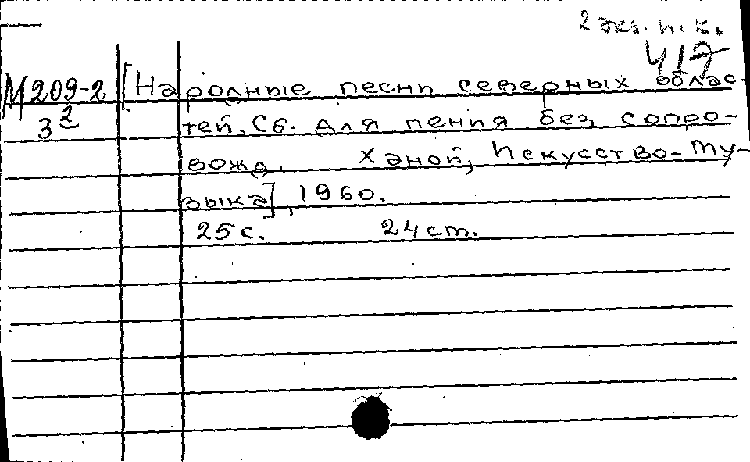 2 экз. н. к.
417
М209-2 [Народные песни северных облас-
3² тей. Сб. для пения без сопро-
вожд. Ханой, Искусство-Му-
зыка], 1960.
25 с. 24 ст.